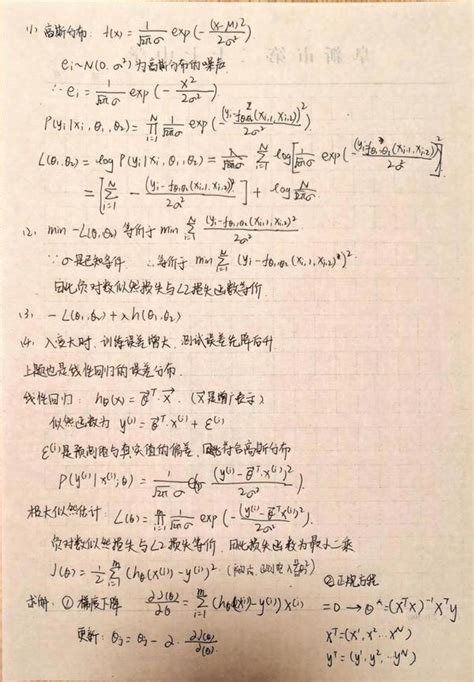 (1) 高斯分布: f(x) = 1/(√2π σ) exp(-(x-μ)²/2σ²)
ei ~ N(0, σ²) 为高斯分布的噪声
∴ ei = 1/(√2π σ) exp(-x²/2σ²)
P(yi|xi, θ1, θ2) = ∏_{i=1}^{N} 1/(√2π σ) exp(-(yi-fθ1,θ2(xi,1, xi,2))²/2σ²)
L(θ1,θ2) = log P(yi|xi, θ1,θ2) = Σ_{i=1}^{N} log[1/(√2π σ) exp(-(yi-fθ1,θ2(xi,1, xi,2))²/2σ²)]
= [Σ_{i=1}^{N} -(yi-fθ1,θ2(xi,1, xi,2))²/2σ²] + log N/(√2π σ)
(2) min -L(θ1,θ2) 等价于 min Σ_{i=1}^{N} (yi-fθ1,θ2(xi,1, xi,2))²/2σ²
∵ σ是已知条件 ∴等价于 min Σ_{i=1}^{N} (yi-fθ1,θ2(xi,1, xi,2))²
因此负对数似然损失与L2损失函数等价
(3) -L(θ1,θ2) + λh(θ1,θ2)
(4) 入变大时, 训练误差增大, 测试误差先降后升
上题也是线性回归的误差分布.
线性回归: hθ(x) = θ^T·X. (X是增广表示)
似然函数为 y^(i) = θ^T·x^(i) + ε^(i)
ε^(i)是预测值与真实值的偏差, 因此符合高斯分布
P(y^(i)|x^(i);θ) = 1/(√2π σ) exp(-(y^(i)-θ^T·x^(i))²/2σ²)
极大似然估计: L(θ) = ∏_{i=1}^{m} 1/(√2π σ) exp(-(y^(i)-θ^T x^(i))²/2σ²)
负对数似然损失与L2损失等价, 因此损失函数为最小二乘
J(θ) = 1/2 Σ_{i=1}^{m} (hθ(x^(i))-y^(i))².
求解: ① 梯度下降 ∂J(θ)/∂θ = Σ_{i=1}^{m} (hθ(x^(i))-y^(i))x^(i)
更新: θj = θj - α·∂J(θ)/∂(θ).
②正规方程
=0 → θ^ = (X^T X)^-1 X^T y
X^T = (x¹, x² … x^N)
y^T = (y¹, y², … y^N)